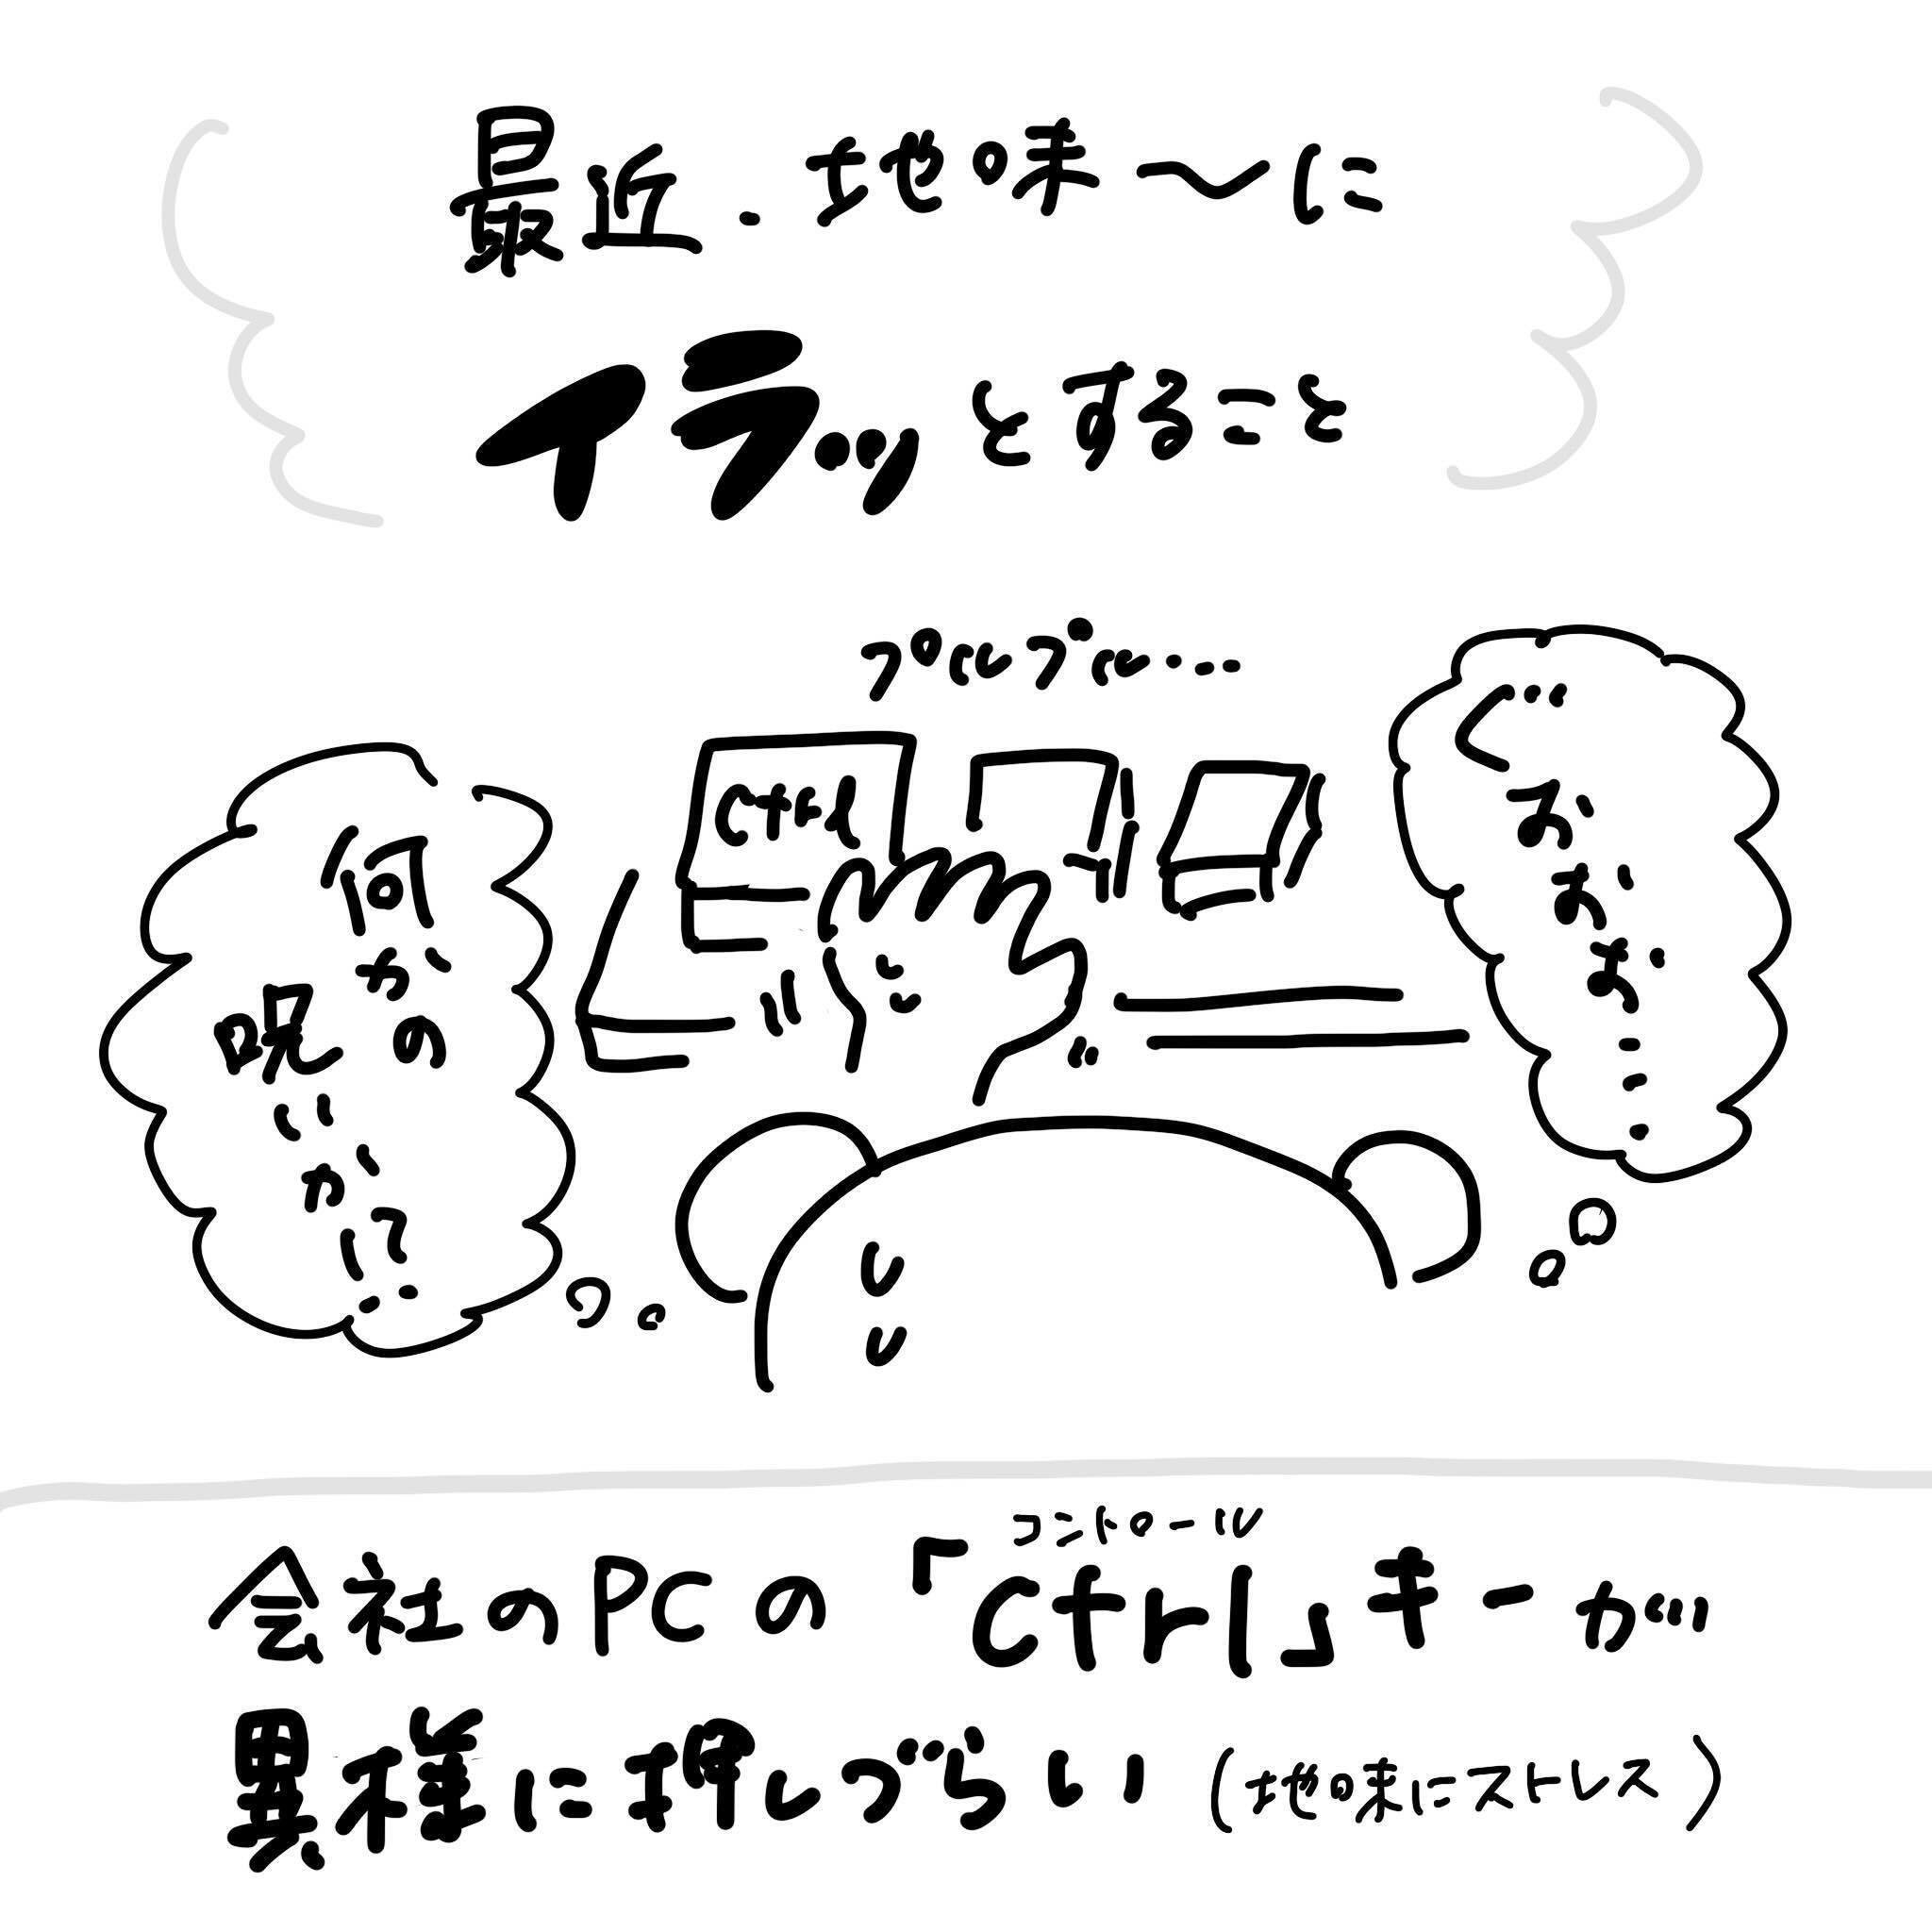 最近、地味〜に
イラッとすること
プルプル……
く…
お、
お、
お、
…
Ctrl
何かの
呪い
か、
!?
コントロール
会社のPCの「Ctrl」キーが
異様に押しづらい(地味にストレス)